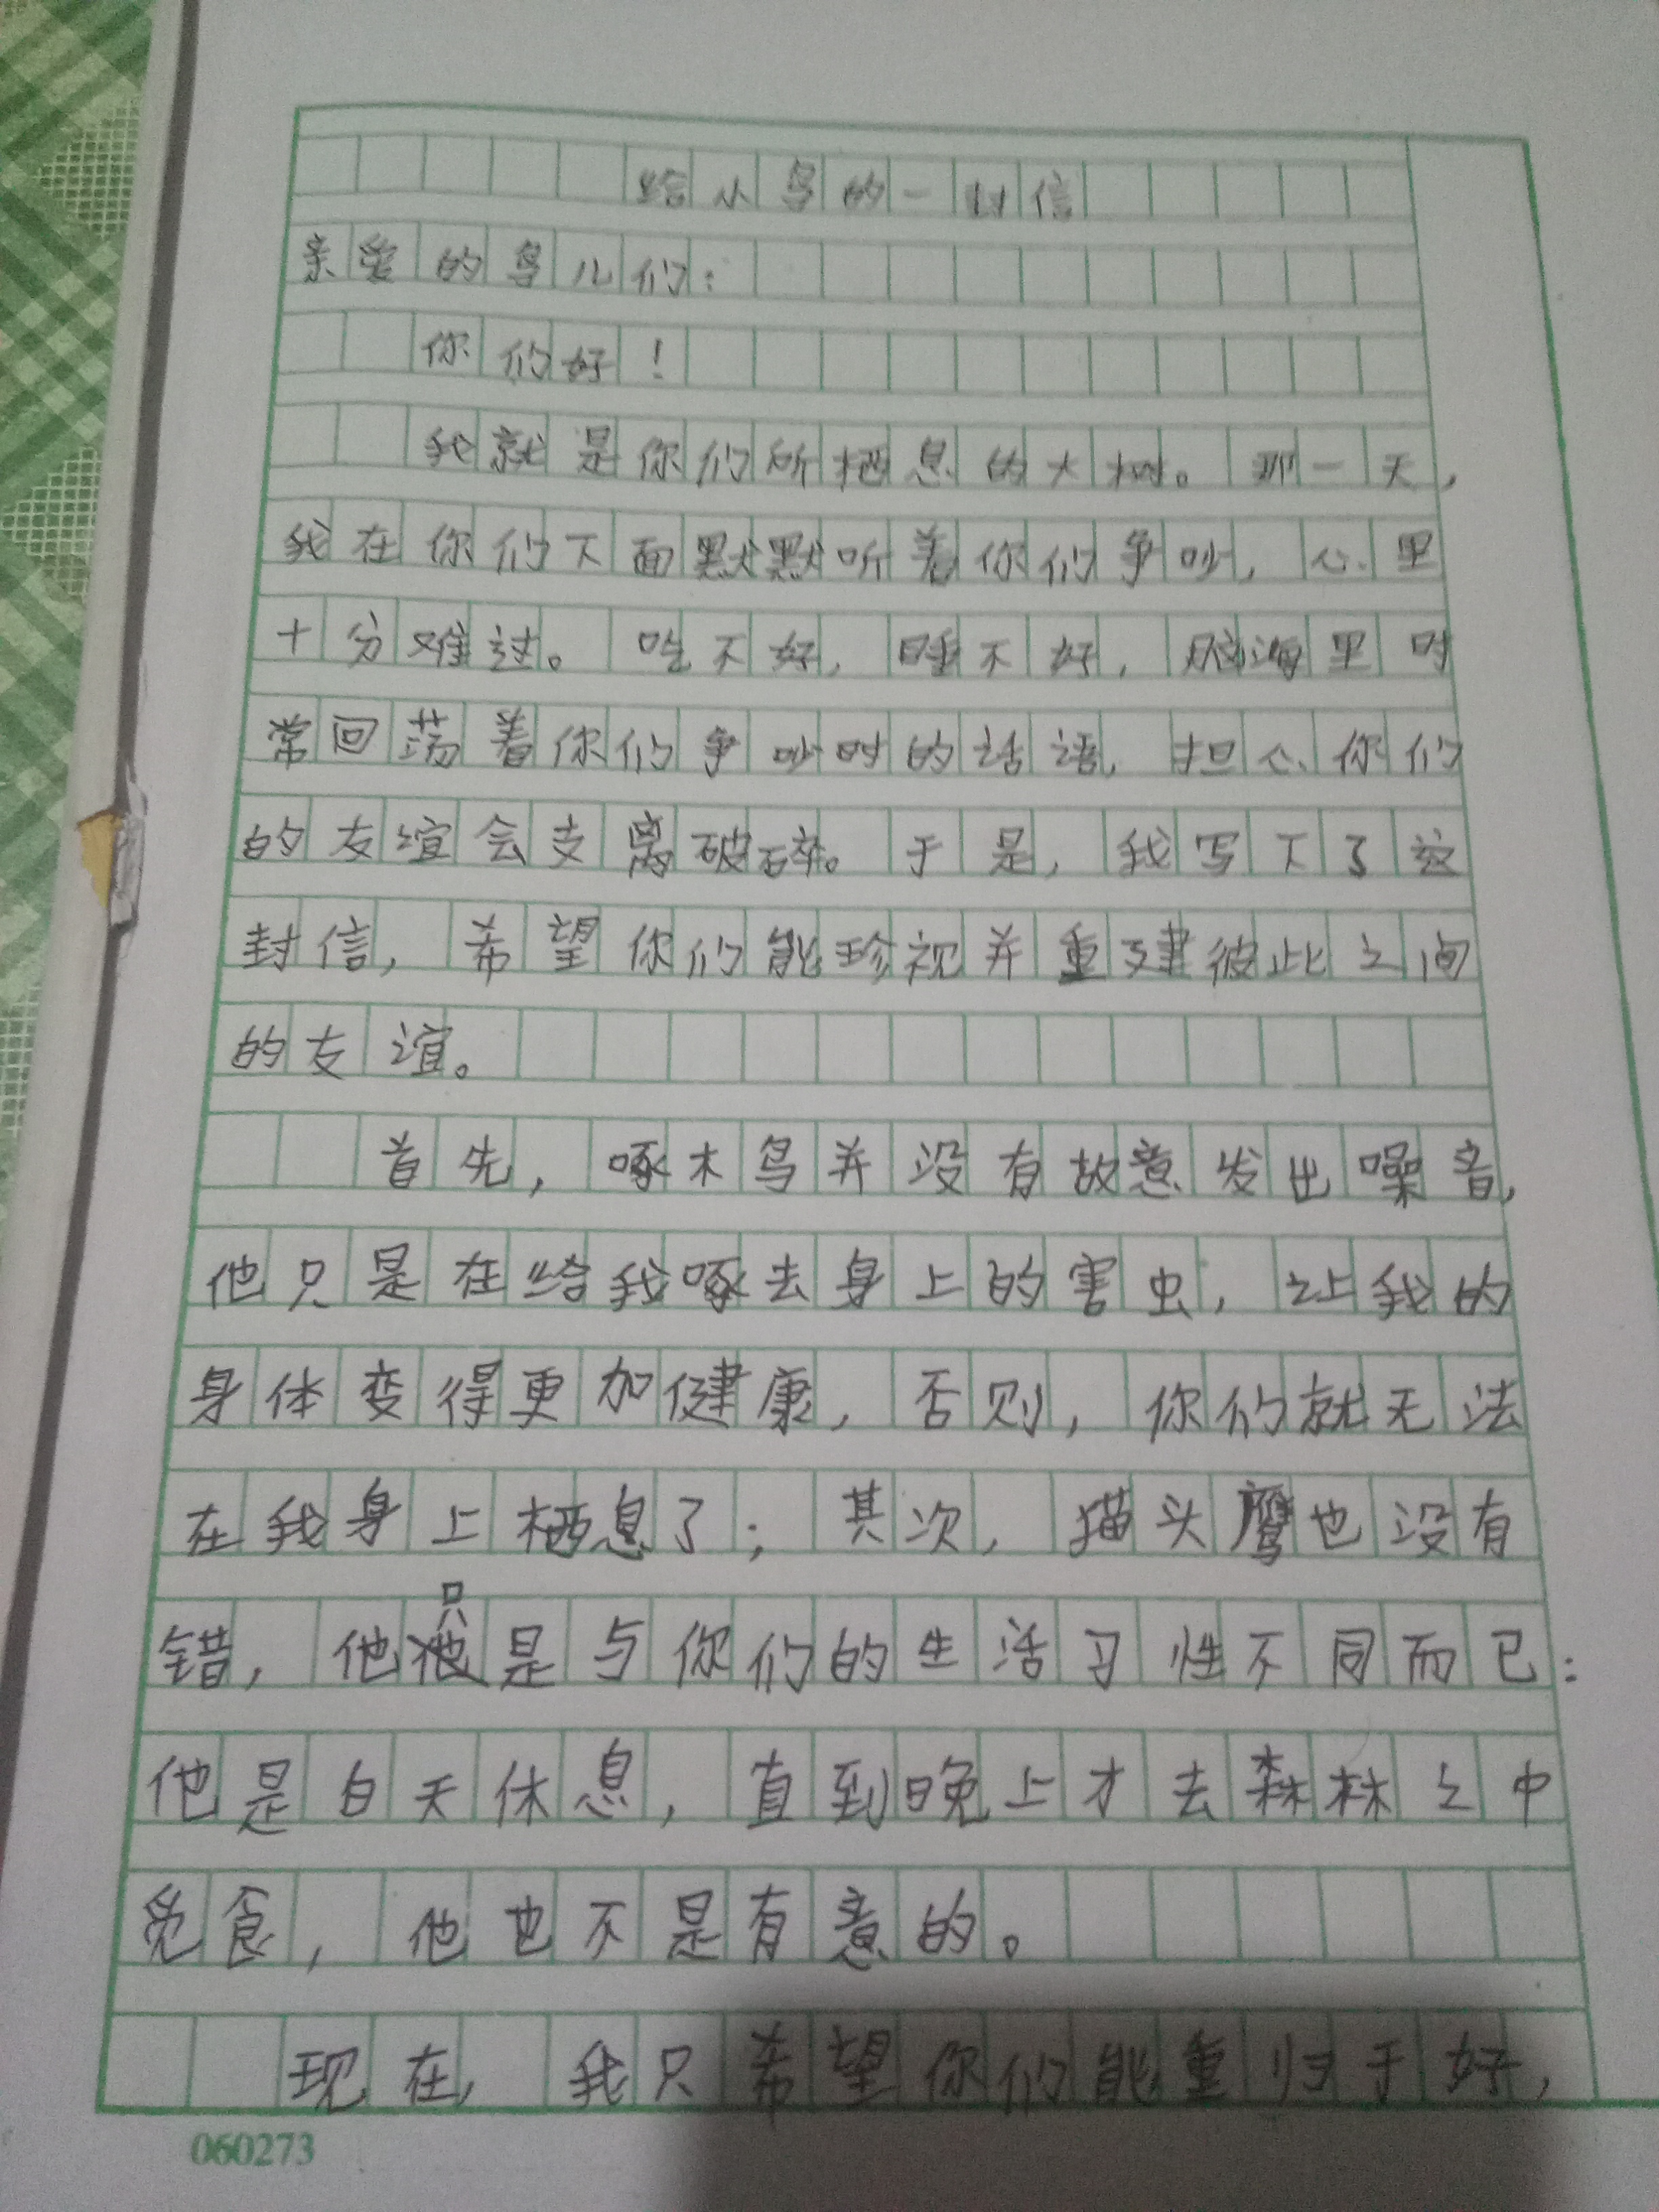 给小鸟的一封信
亲爱的鸟儿们：
你们好！
我就是你们所栖息的大树。那一天，
我在你们下面默默听着你们争吵，心里
十分难过。吃不好，睡不好，脑海里时
常回荡着你们争吵时的话语，担心你们
的友谊会支离破碎。于是，我写下了这
封信，希望你们能珍视并重建彼此之间
的友谊。
首先，啄木鸟并没有故意发出噪音，
他只是在给我啄去身上的害虫，让我的
身体变得更加健康，否则，你们就无法
在我身上栖息了；其次，猫头鹰也没有
错，他只是与你们的生活习性不同而已：
他是白天休息，直到晚上才去森林之中
觅食，他也不是有意的。
现在，我只希望你们能重归于好，
060273